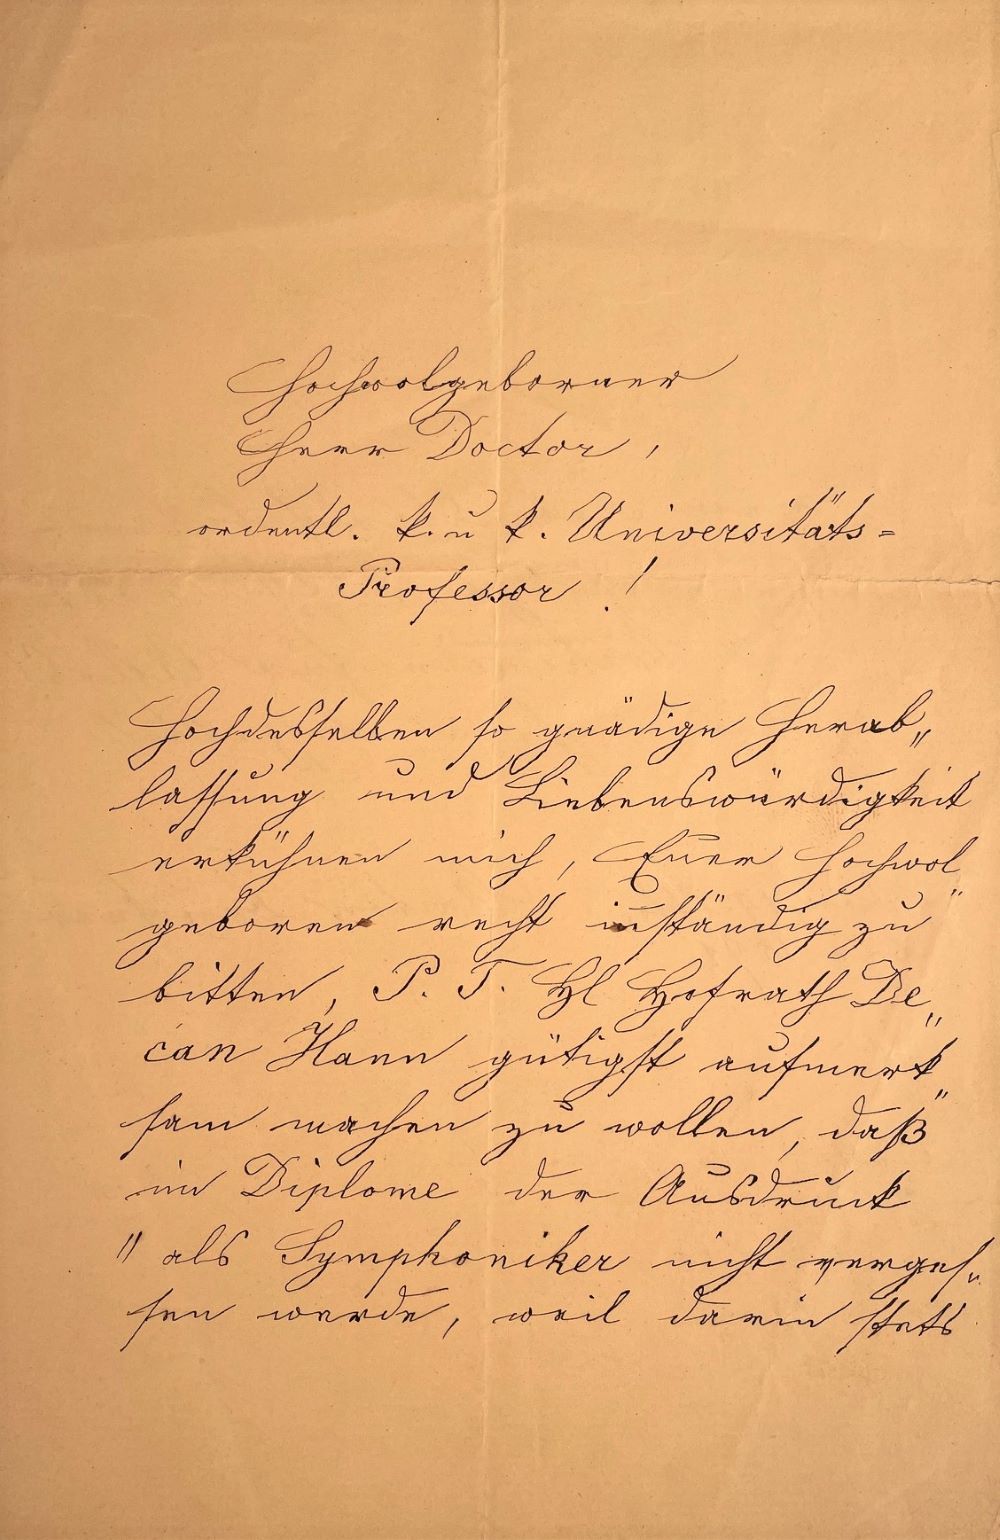 Hochwolgeborner
Herr Doctor,
ordentl. k. u k. Universitäts=
Professor !
Hochdesselben so gnädige Herab„
lassung und Liebenswürdigkeit
erkühnen mich, Euer Hochwol„
geboren recht inständig zu
bitten, P. T. Hl Hofrath De„
can Hann gütigst aufmerk„
sam machen zu wollen, daß
im Diplome der Ausdruck
"als Symphoniker nicht verges„
sen werde, weil darin stets